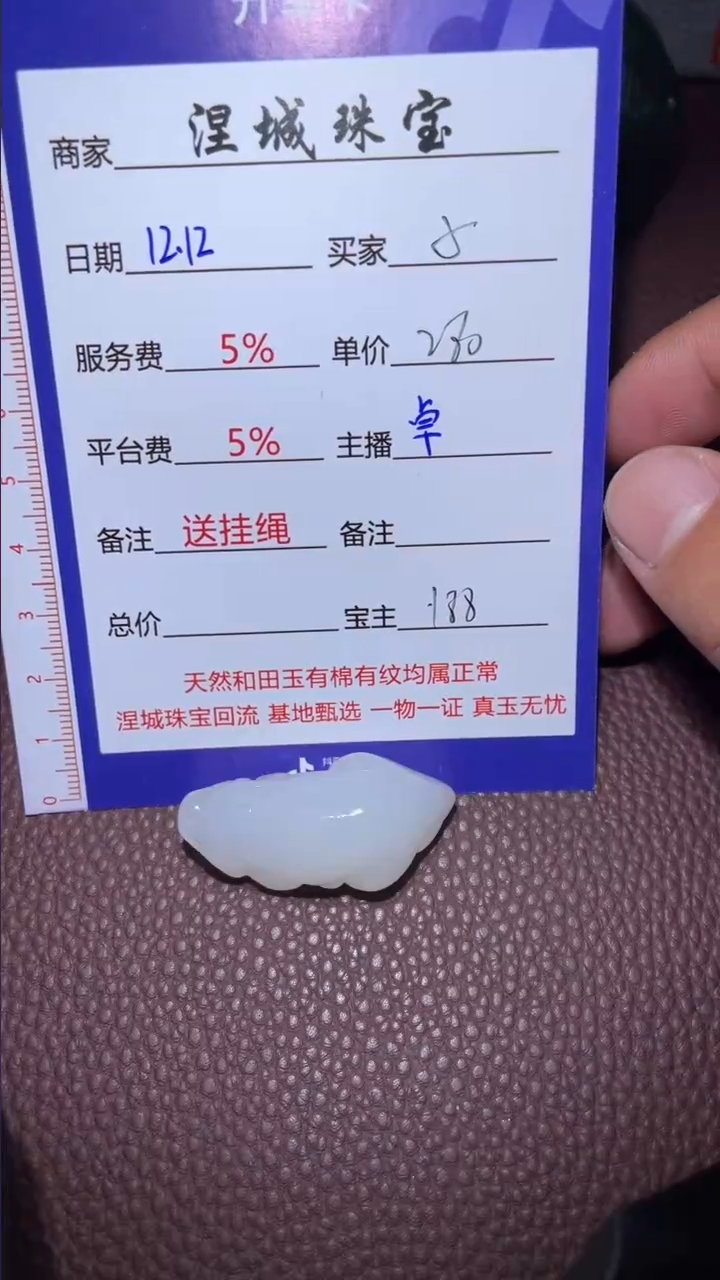 商家 涅城珠宝
日期 12.12 买家
服务费 5% 单价
平台费 5% 主播 卓
备注 送挂绳 备注
总价 宝主 188
天然和田玉有棉有纹均属正常
涅城珠宝回流 基地甄选 一物一证 真玉无忧
0 1 2 3 4 5